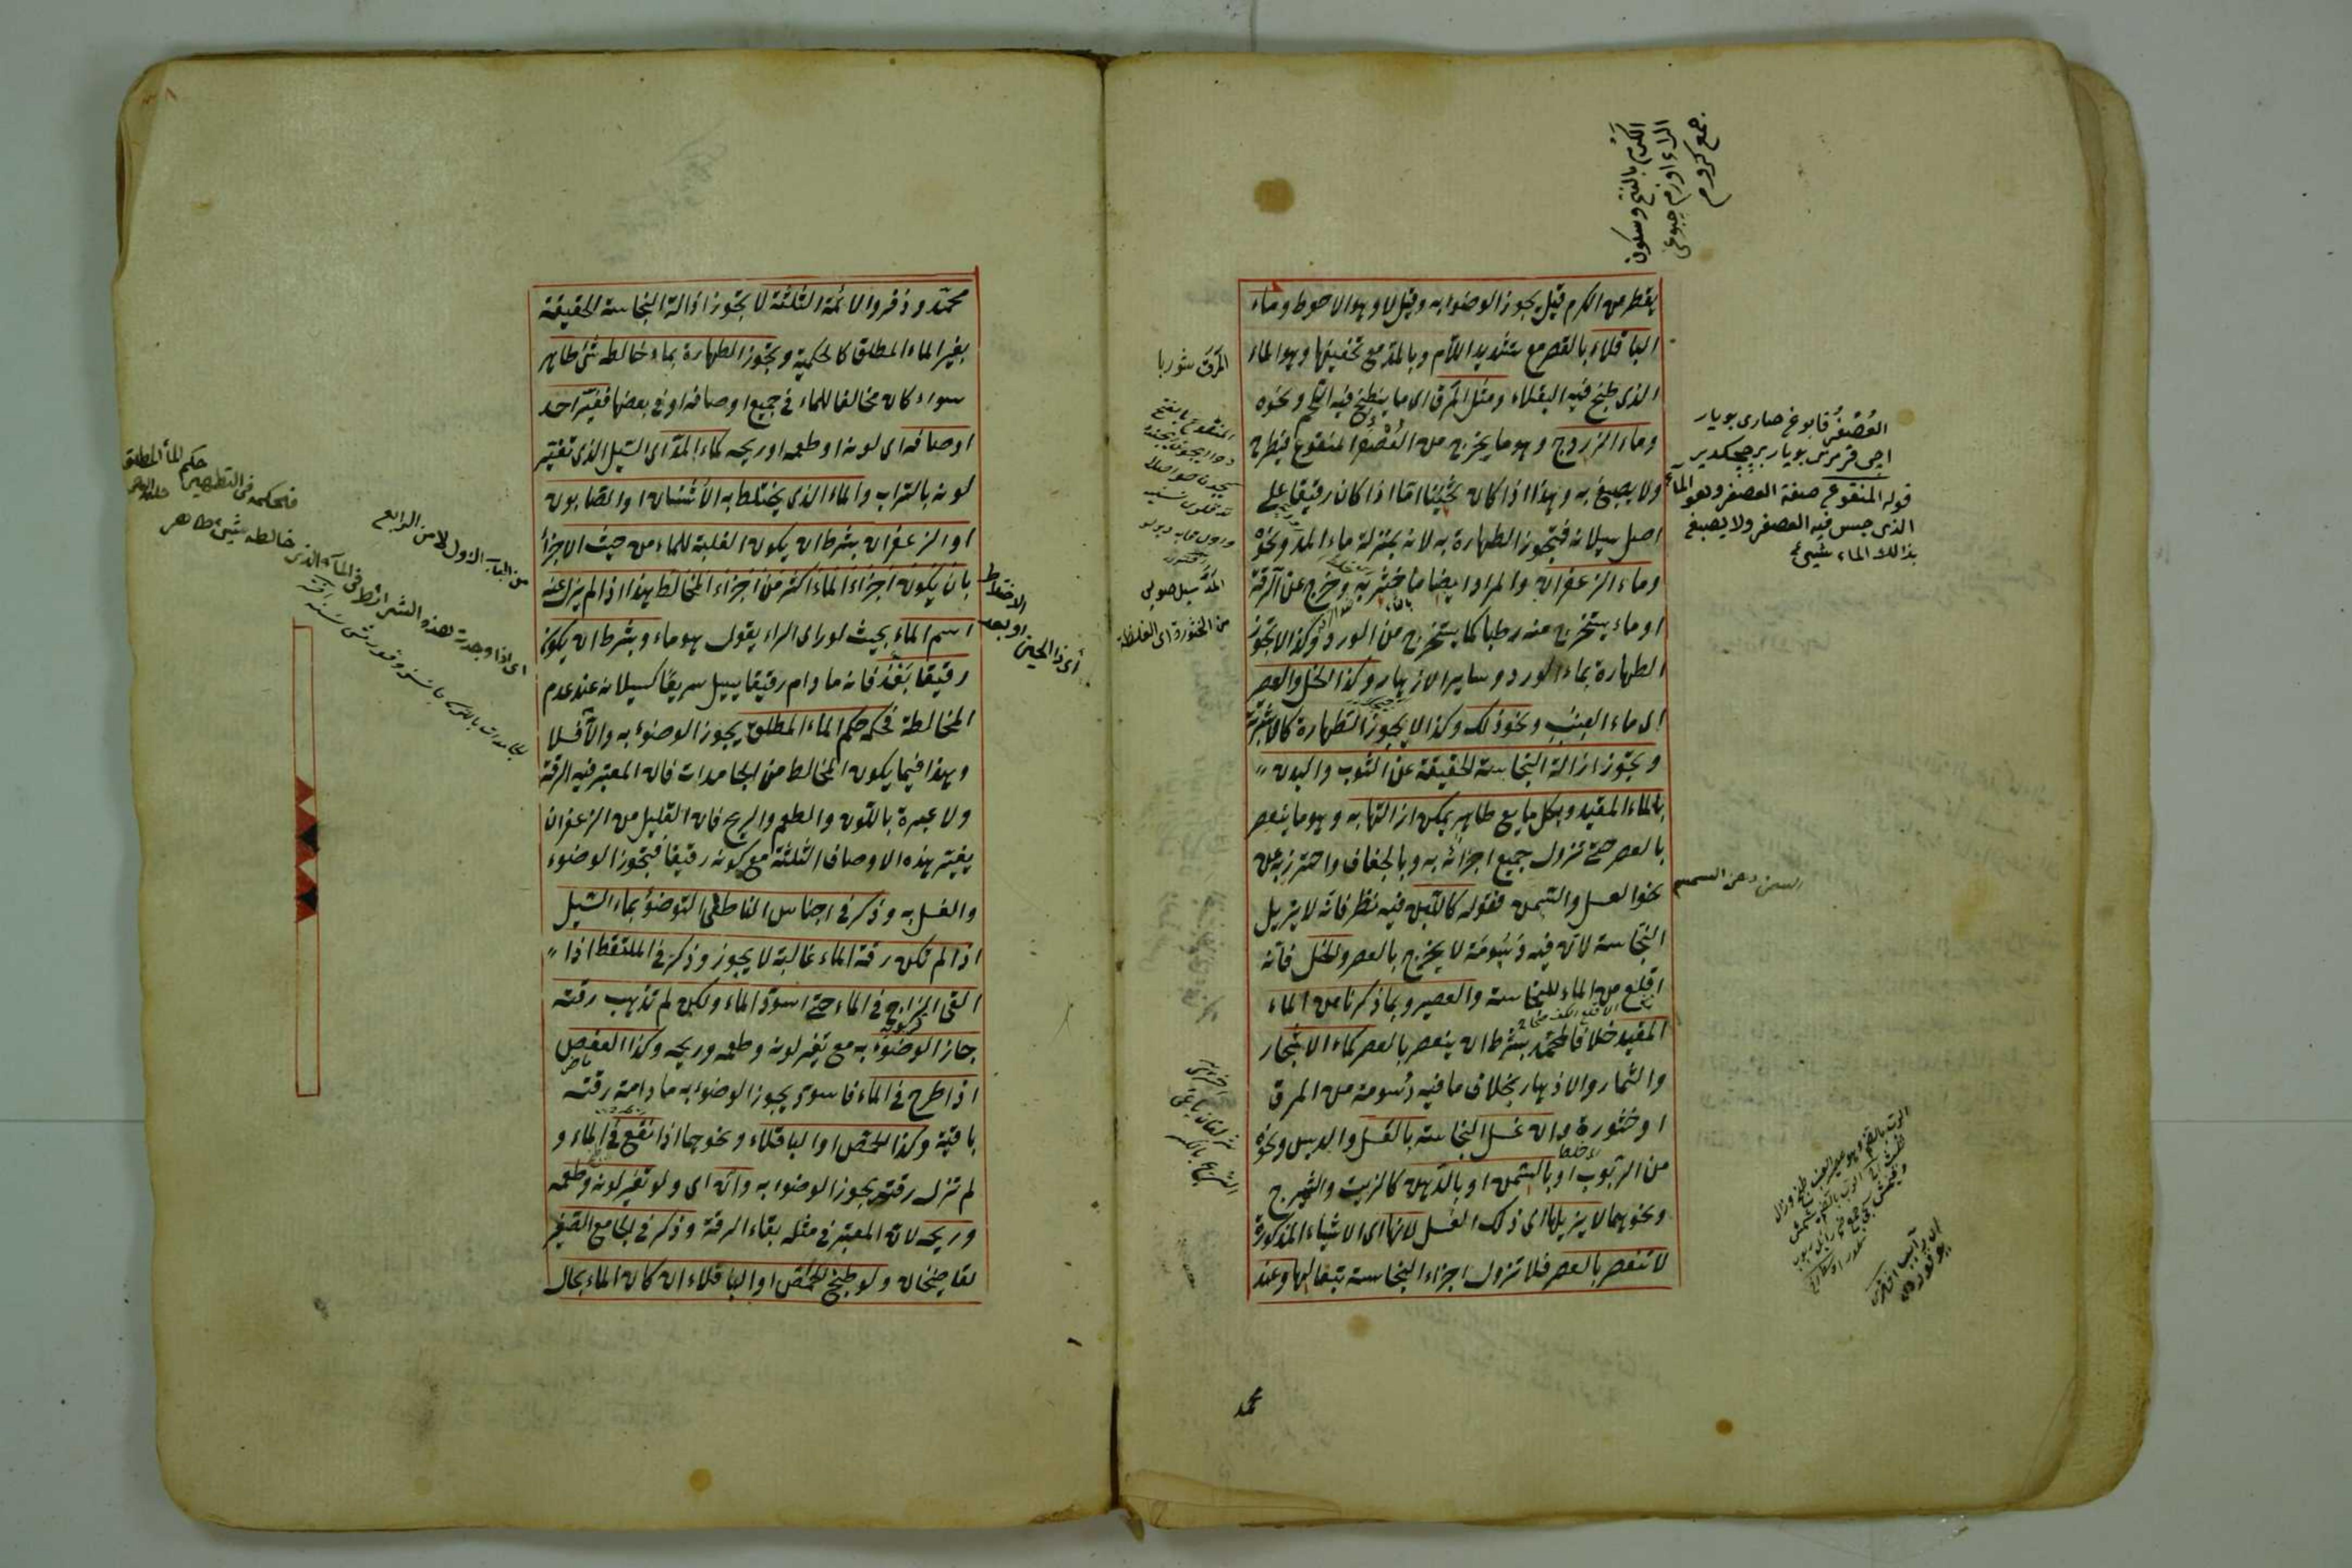 يقطر من الكرم قيل يجوز الوضوء به وقيل لا وهو الاحوط وماء
الباقلاء بالقصر مع تشديد اللام وبالمد مع تخفيفها وهو الماء
الذي طبخ فيه الباقلاء ومثل المرق اي ما ينطبخ فيه اللحم ونحوه
وماء الزردج وهو ما يخرج من العصفر المنقوع فيطرح
ولا يصبغ به وهذا اذا كان ثخينا اما اذا كان رقيقا على
اصل سيلانه فتجوز الطهارة به لانه بمنزلة ماء المد ونحوه
وماء الزعفران والمراد ايضا ما خثر به وخرج عن الرقة
او ماء يستخرج منه رطبا كما يستخرج من الورد وكذا لا تجوز
الطهارة بماء الورد وساير الازهار وكذا الخل والعصير
اي ماء العنب ونحو ذلك وكذا لا يجوز الطهارة كالاشربة
ويجوز ازالة النجاسة الحقيقة عن الثوب والبدن
بالماء المقيد وبكل مايع طاهر يمكن ازالتها به وهو ما ينعصر
بالعصر حتى تزول جميع اجزائه به وبالجفاف واحترز به عن
نحو العسل والسمن فقوله كاللبن فيه نظر فانه لا يزيل
النجاسة لان فيه دسومة لا يخرج بالعصر والخل فانه
اقلع من الماء للنجاسة والعصير وبما ذكرنا من الماء
المقيد خلافا لمحمد بشرط ان ينعصر بالعصر كماء الاشجار
والثمار والازهار بخلاف ما فيه دسومة من المرق
او خثورة وان غسل النجاسة بالعسل والدبس ونحوه
من الربوب او بالسمن او بالدهن كالزيت والشيرج
ونحوهما لا يزيلها اي ذلك الغسل لانها اي الاشياء المذكورة
لا تنعصر بالعصر فلا تزول اجزاء النجاسة بتبعا لها وعند
محمد
الكرم بالفتح وسكون
الراء اوزم چبوغى
جمع كروم
العصفر قابوغ صارى بويار
ايچى قرمزى بويار بر چچكدير
قوله المنقوع صفة العصفر وهو الماء
الذي حبس فيه العصفر ولا يصبغ
بذالك الماء شيئ
السمن دهن السمسم
المرق شوربا
المد سيل صويى
من الخثورة اى الغلظة
محمد وزفر والائمة الثلثة لا يجوز ازالة النجاسة الحقيقة
بغير الماء المطلق كالحكمية ويجوز الطهارة بماء خالطه شئ طاهر
سواء كان مخالفا للماء في جميع اوصافه او في بعضها فغير احد
اوصافه اي لونه او طعمه او ريحه كماء المد اي السيل الذي تغير
لونه بالتراب والماء الذي يختلط به الاشنان او الصابون
او الزعفران بشرط ان يكون الغلبة للماء من حيث الاجزاء
بان يكون اجزاء الماء اكثر من اجزاء المخالط هذا اذا لم يزل عنه
اسم الماء بحيث لو راى الراء يقول هو ماء وبشرط ان يكون
رقيقا بعد فانه ما دام رقيقا يسيل سريعا كسيلانه عند عدم
المخالطة فحكمه حكم الماء المطلق يجوز الوضوء به والا فلا
وهذا فيما يكون المخالط من الجامدات فان المعتبر فيه الرقة
ولا عبرة باللون والطعم والريح فان القليل من الزعفران
يغير هذه الاوصاف الثلثة مع كونه رقيقا فيجوز الوضوء
والغسل به وذكر في اجناس الناطفي التوضؤ بماء السيل
اذا لم تكن رقة الماء غالبة لا يجوز وذكر في الملتقط اذا
القى الزاج في الماء حتى اسود الماء ولكن لم تذهب رقته
جاز الوضوء به مع تغير لونه وطعمه وريحه وكذا العفص
اذا طرح في الماء فاسود يجوز الوضوء به ما دامة رقته
باقية وكذا الحمص او الباقلاء ونحوهما اذا نقع في الماء و
لم تزل رقته يجوز الوضوء به وان اي ولو تغير لونه وطعمه
وريحه لان المعتبر في مثله بقاء الرقة وذكر في الجامع الصغير
لقاضيخان ولو طبخ الحمص او الباقلاء ان كان الماء بحال
او بعد
الاختلاط
اى ذا الحين
حكم الماء المطلق
فحكمه في التطهير
من الباب الاول لا من الرابع
اى اذا وجدت هذه الشرائط في الماء الذي خالطه شيئ طاهر